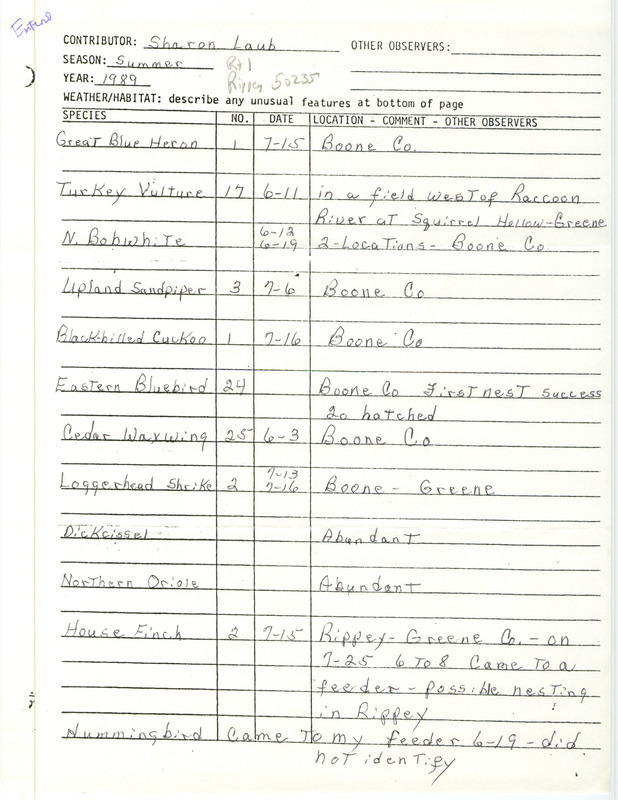 Entered
CONTRIBUTOR: Sharon Laub OTHER OBSERVERS:
SEASON: Summer Rt 1
YEAR: 1989 Rippey 50235
WEATHER/HABITAT: describe any unusual features at bottom of page
SPECIES NO. DATE LOCATION - COMMENT - OTHER OBSERVERS
Great Blue Heron 1 7-15 Boone Co.
Turkey Vulture 17 6-11 in a field west of Raccoon
River at Squirrel Hollow-Greene
6-12
N. Bobwhite 6-19 2-Locations- Boone Co
Upland Sandpiper 3 7-6 Boone Co
Black-billed Cuckoo 1 7-16 Boone Co
Eastern Bluebird 24 Boone Co First nest success
20 hatched
Cedar Waxwing 25 6-3 Boone Co
7-13
Loggerhead Shrike 2 7-16 Boone - Greene
Dickcissel Abundant
Northern Oriole Abundant
House Finch 2 7-15 Rippey- Greene Co. - on
7-25 6 to 8 Came to a
feeder - possible nesting
in Rippey
Hummingbird Came to my feeder 6-19 - did
not identify